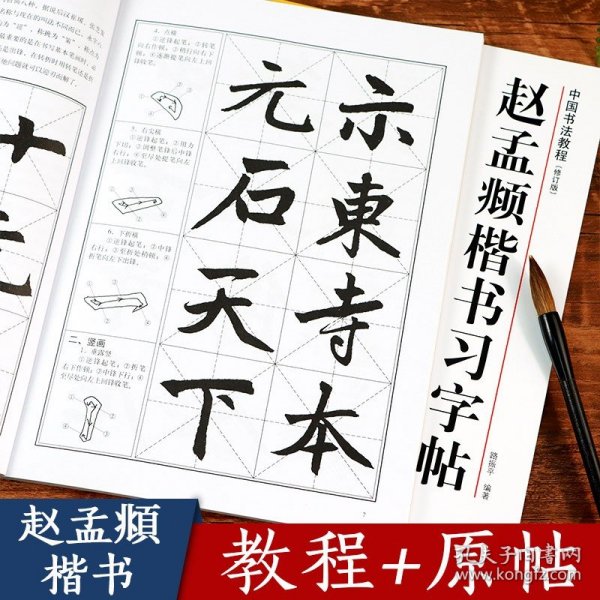 4. 点横
①逆锋起笔；②转笔
向右作顿；③稍行向右下
顿；④逐渐提笔向左上回
锋收笔。
5. 右尖横
①逆锋起笔；②用力
下切；③调整笔锋后中锋
右行；④至尽处提笔向左
上回锋收笔。
6. 下折横
①逆锋起笔；②中锋
右行；③至折处稍顿；④
折笔向左下出锋。
二、竖画
1. 垂露竖
①逆锋起笔；②折笔
右下作顿；③中锋下行；④
至尽处向左上回锋收笔。
元 示
石 東
天 寺
下 本
十
元
7
中国书法教程（修订版）
赵孟頫楷书习字帖
路振平 编著
赵孟頫
楷书
教程+原帖
孔夫子旧书网
www.kongfz.com